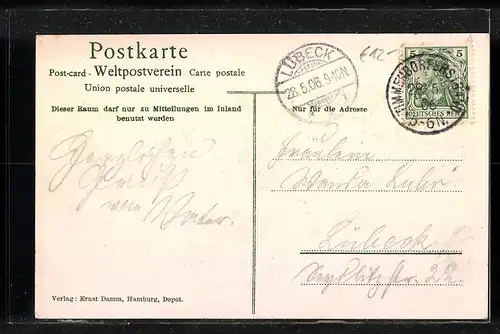 Postkarte
Post-card - Weltpostverein Carte postale
Union postale universelle
Dieser Raum darf nur zu Mitteilungen im Inland
benutzt werden
Herzlichen
Gruß
von Vater.
LÜBECK
28.5.06.9-10N.
612-
5 5
DEUTSCHES REICH
TIMMENDORFERSTRAND
28.5
06
5-6N.
Nur für die Adresse
Fräulein
Wanda
Lübeck
Verlag: Ernst Damm, Hamburg, Depot.